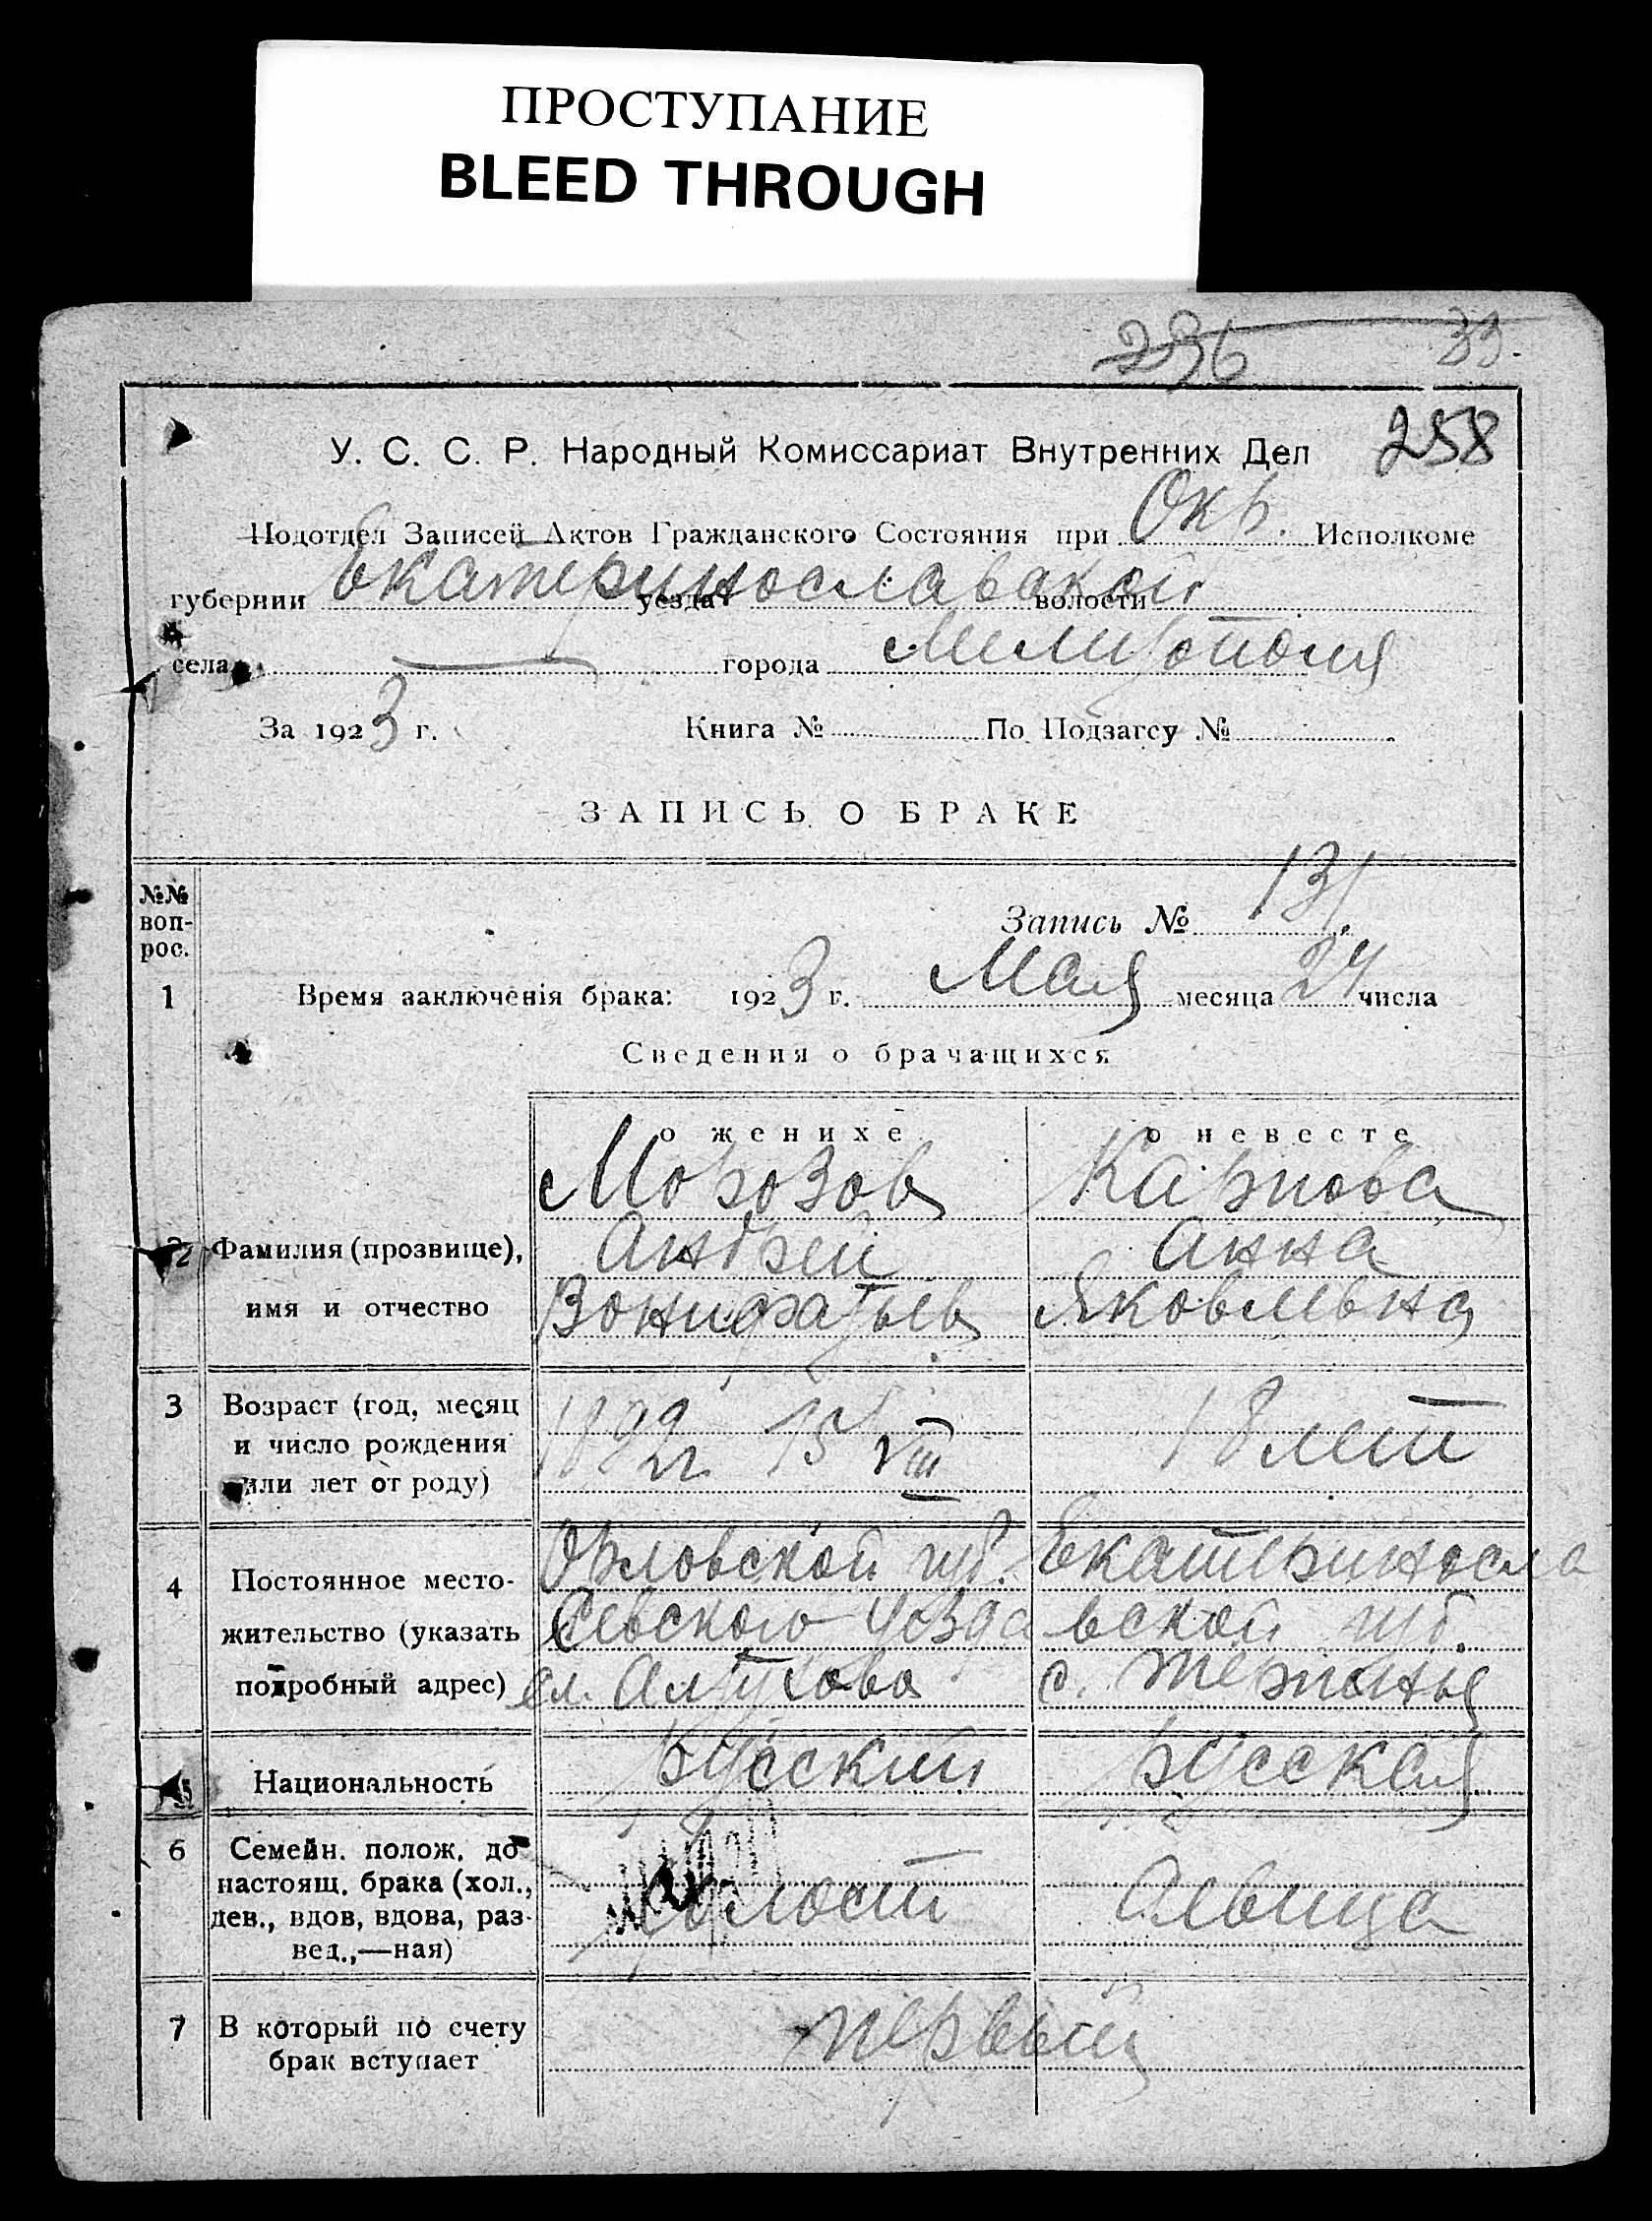 ПРОСТУПАНИЕ
BLEED THROUGH
236 33.
258
У. С. С. Р. Народный Комиссариат Внутренних Дел
Подотдел Записей Актов Гражданского Состояния при Окр. Исполкоме
губернии Екатеринославской уезда волости
села города Мелитополя
За 1923 г. Книга № По Подзагсу №
ЗАПИСЬ О БРАКЕ
№№ воп-рос.
Запись № 131.
1 Время заключенія брака: 1923 г. Мая месяца 24 числа
Сведения о брачащихся
о женихе о невесте
Морозов Карпова
2 Фамилия (прозвище), Андрей Анна
имя и отчество Вонифатьев Яковлевна
3 Возраст (год, месяц
и число рождения 1892 г. 15 VIII 18 лет
или лет от роду)
Орловской губ. Екатериносла
4 Постоянное место- Севского уезда вской губ.
жительство (указать
подробный адрес) сл. Алтухово с. Терпенья
5 Национальность русский русская
6 Семейн. полож. до
настоящ. брака (хол., холост девица
дев., вдов, вдова, раз-
вед.,—ная)
7 В который по счету первый
брак вступает